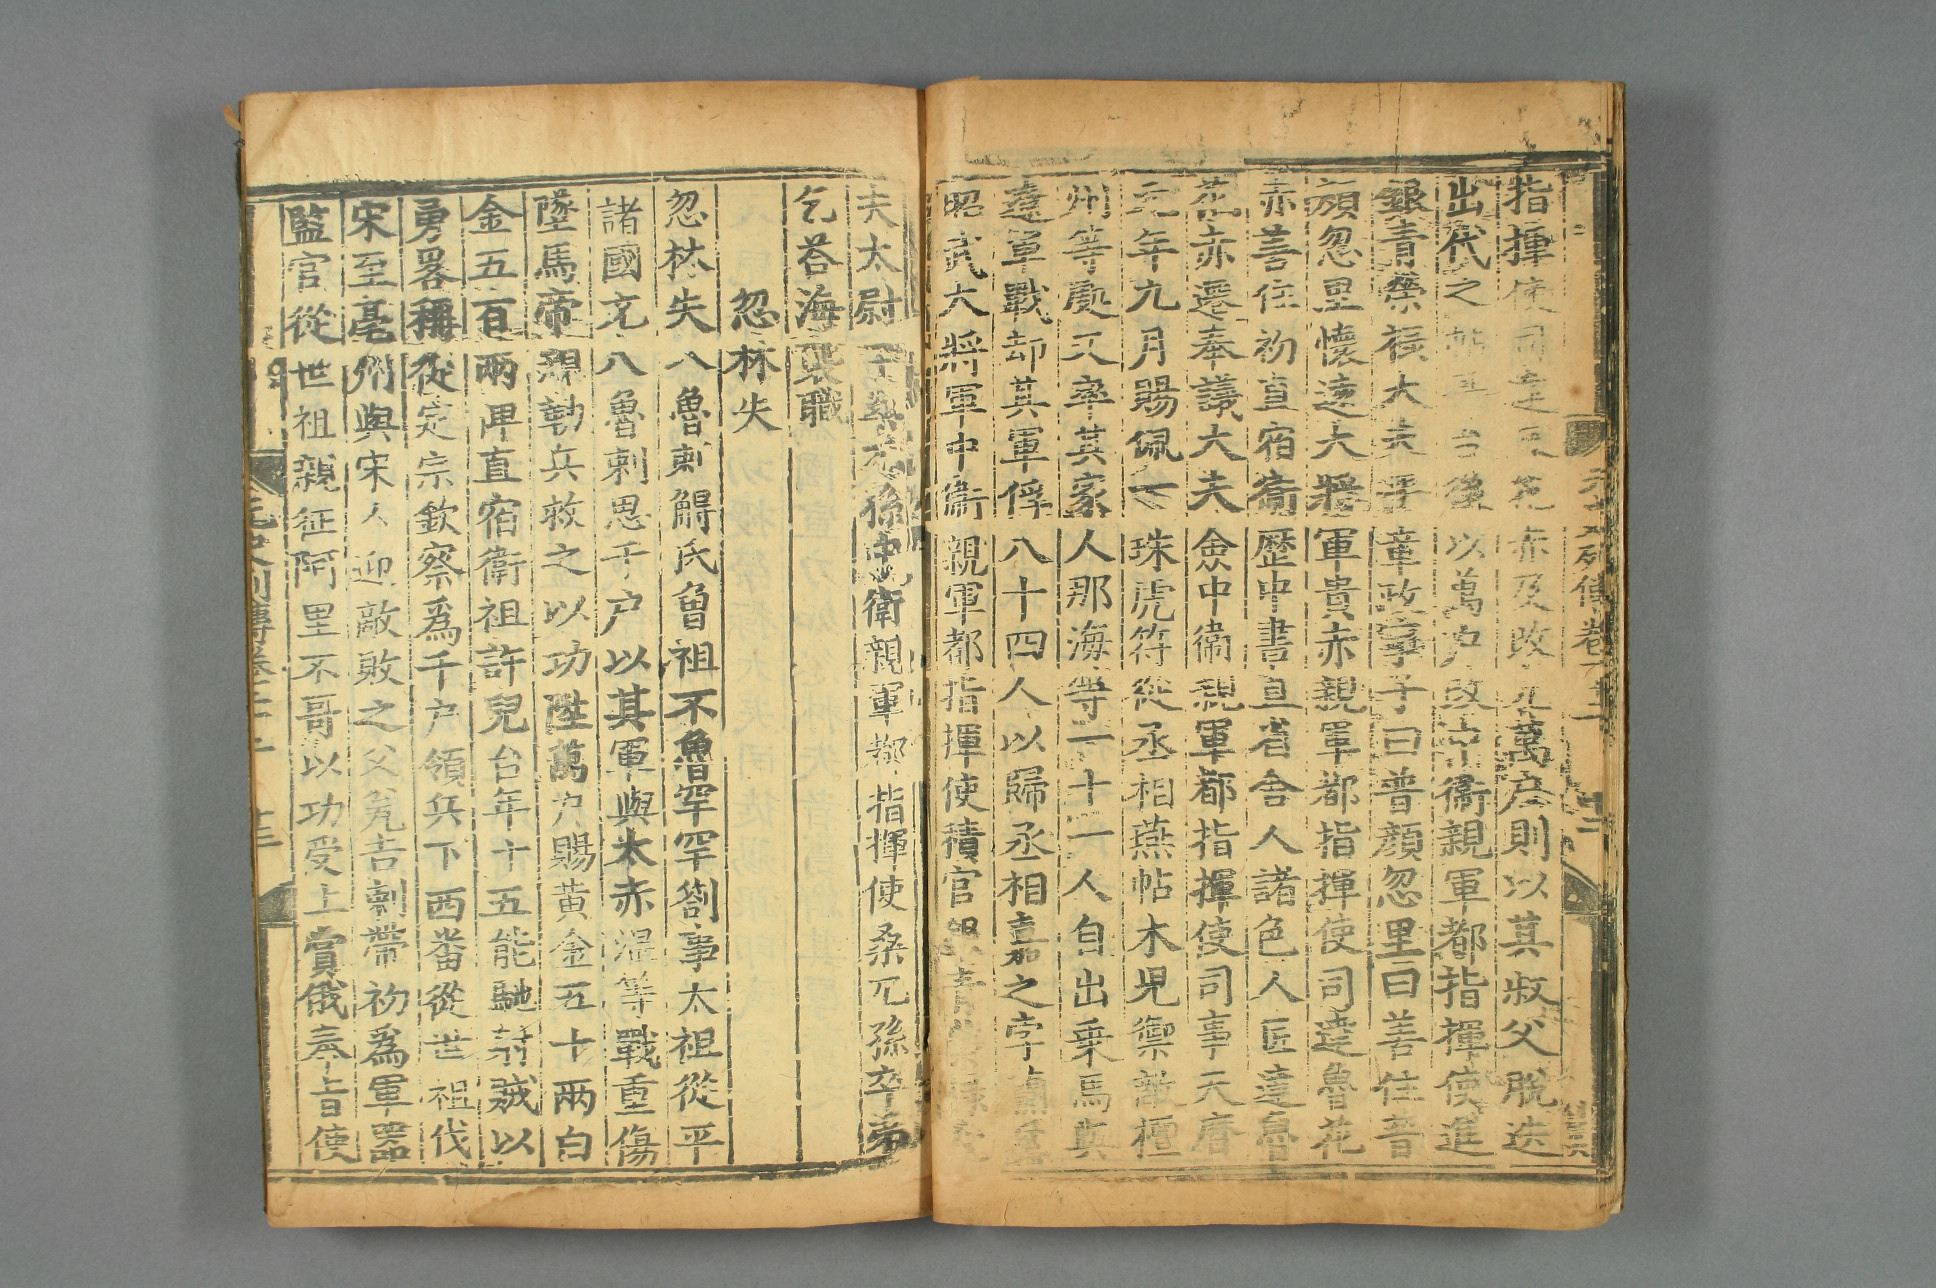 指揮使司達魯花赤及改萬戶則以其叔父脫迭
出代之帖木台後以萬戶改中衞親軍都指揮使進
銀青榮祿大夫平章政事子曰普顏忽里曰善住普
顏忽里懷遠大將軍貴赤親軍都指揮使司達魯花
赤善住初直宿衞歷中書直省舍人諸色人匠達魯
花赤遷奉議大夫僉中衞親軍都指揮使司事天曆
元年九月賜佩一珠虎符從丞相燕帖木兒禦敵檀
州等處又率其家人那海等二十一人自出乗馬與
遼軍戰却其軍俘八十四人以歸丞相嘉之
昭武大將軍中衞親軍都指揮使積官
夫太尉孫中衛親軍都指揮使桑兀孫卒弟
乞荅海襲職
忽林失
忽林失八魯剌䚟氏曾祖不魯罕罕劄事太祖從平
諸國充八魯剌思千户以其軍與太赤溫等戰重傷
墜馬帝親勒兵救之以功陞萬户賜黃金五十兩白
金五百兩俾直宿衛祖許兒台年十五能馳射賊以
勇畧稱從定宗欽察爲千户領兵下西番從世祖伐
宋至亳州與宋人迎敵敗之父瓮吉剌帶初爲軍器
監官從世祖親征阿里不哥以功受上賞俄奉旨使
元史列傳卷二十二 十三